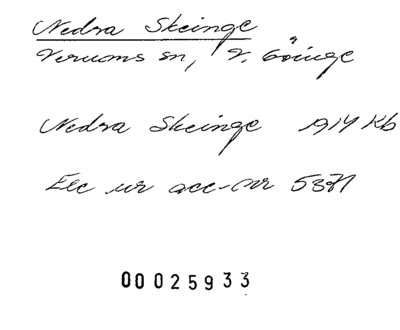 Nedra Skeinge
Verums sn, V. Göinge
Nedra Skeinge 1914 Kb
Exc ur acc-nr 5371
00025933